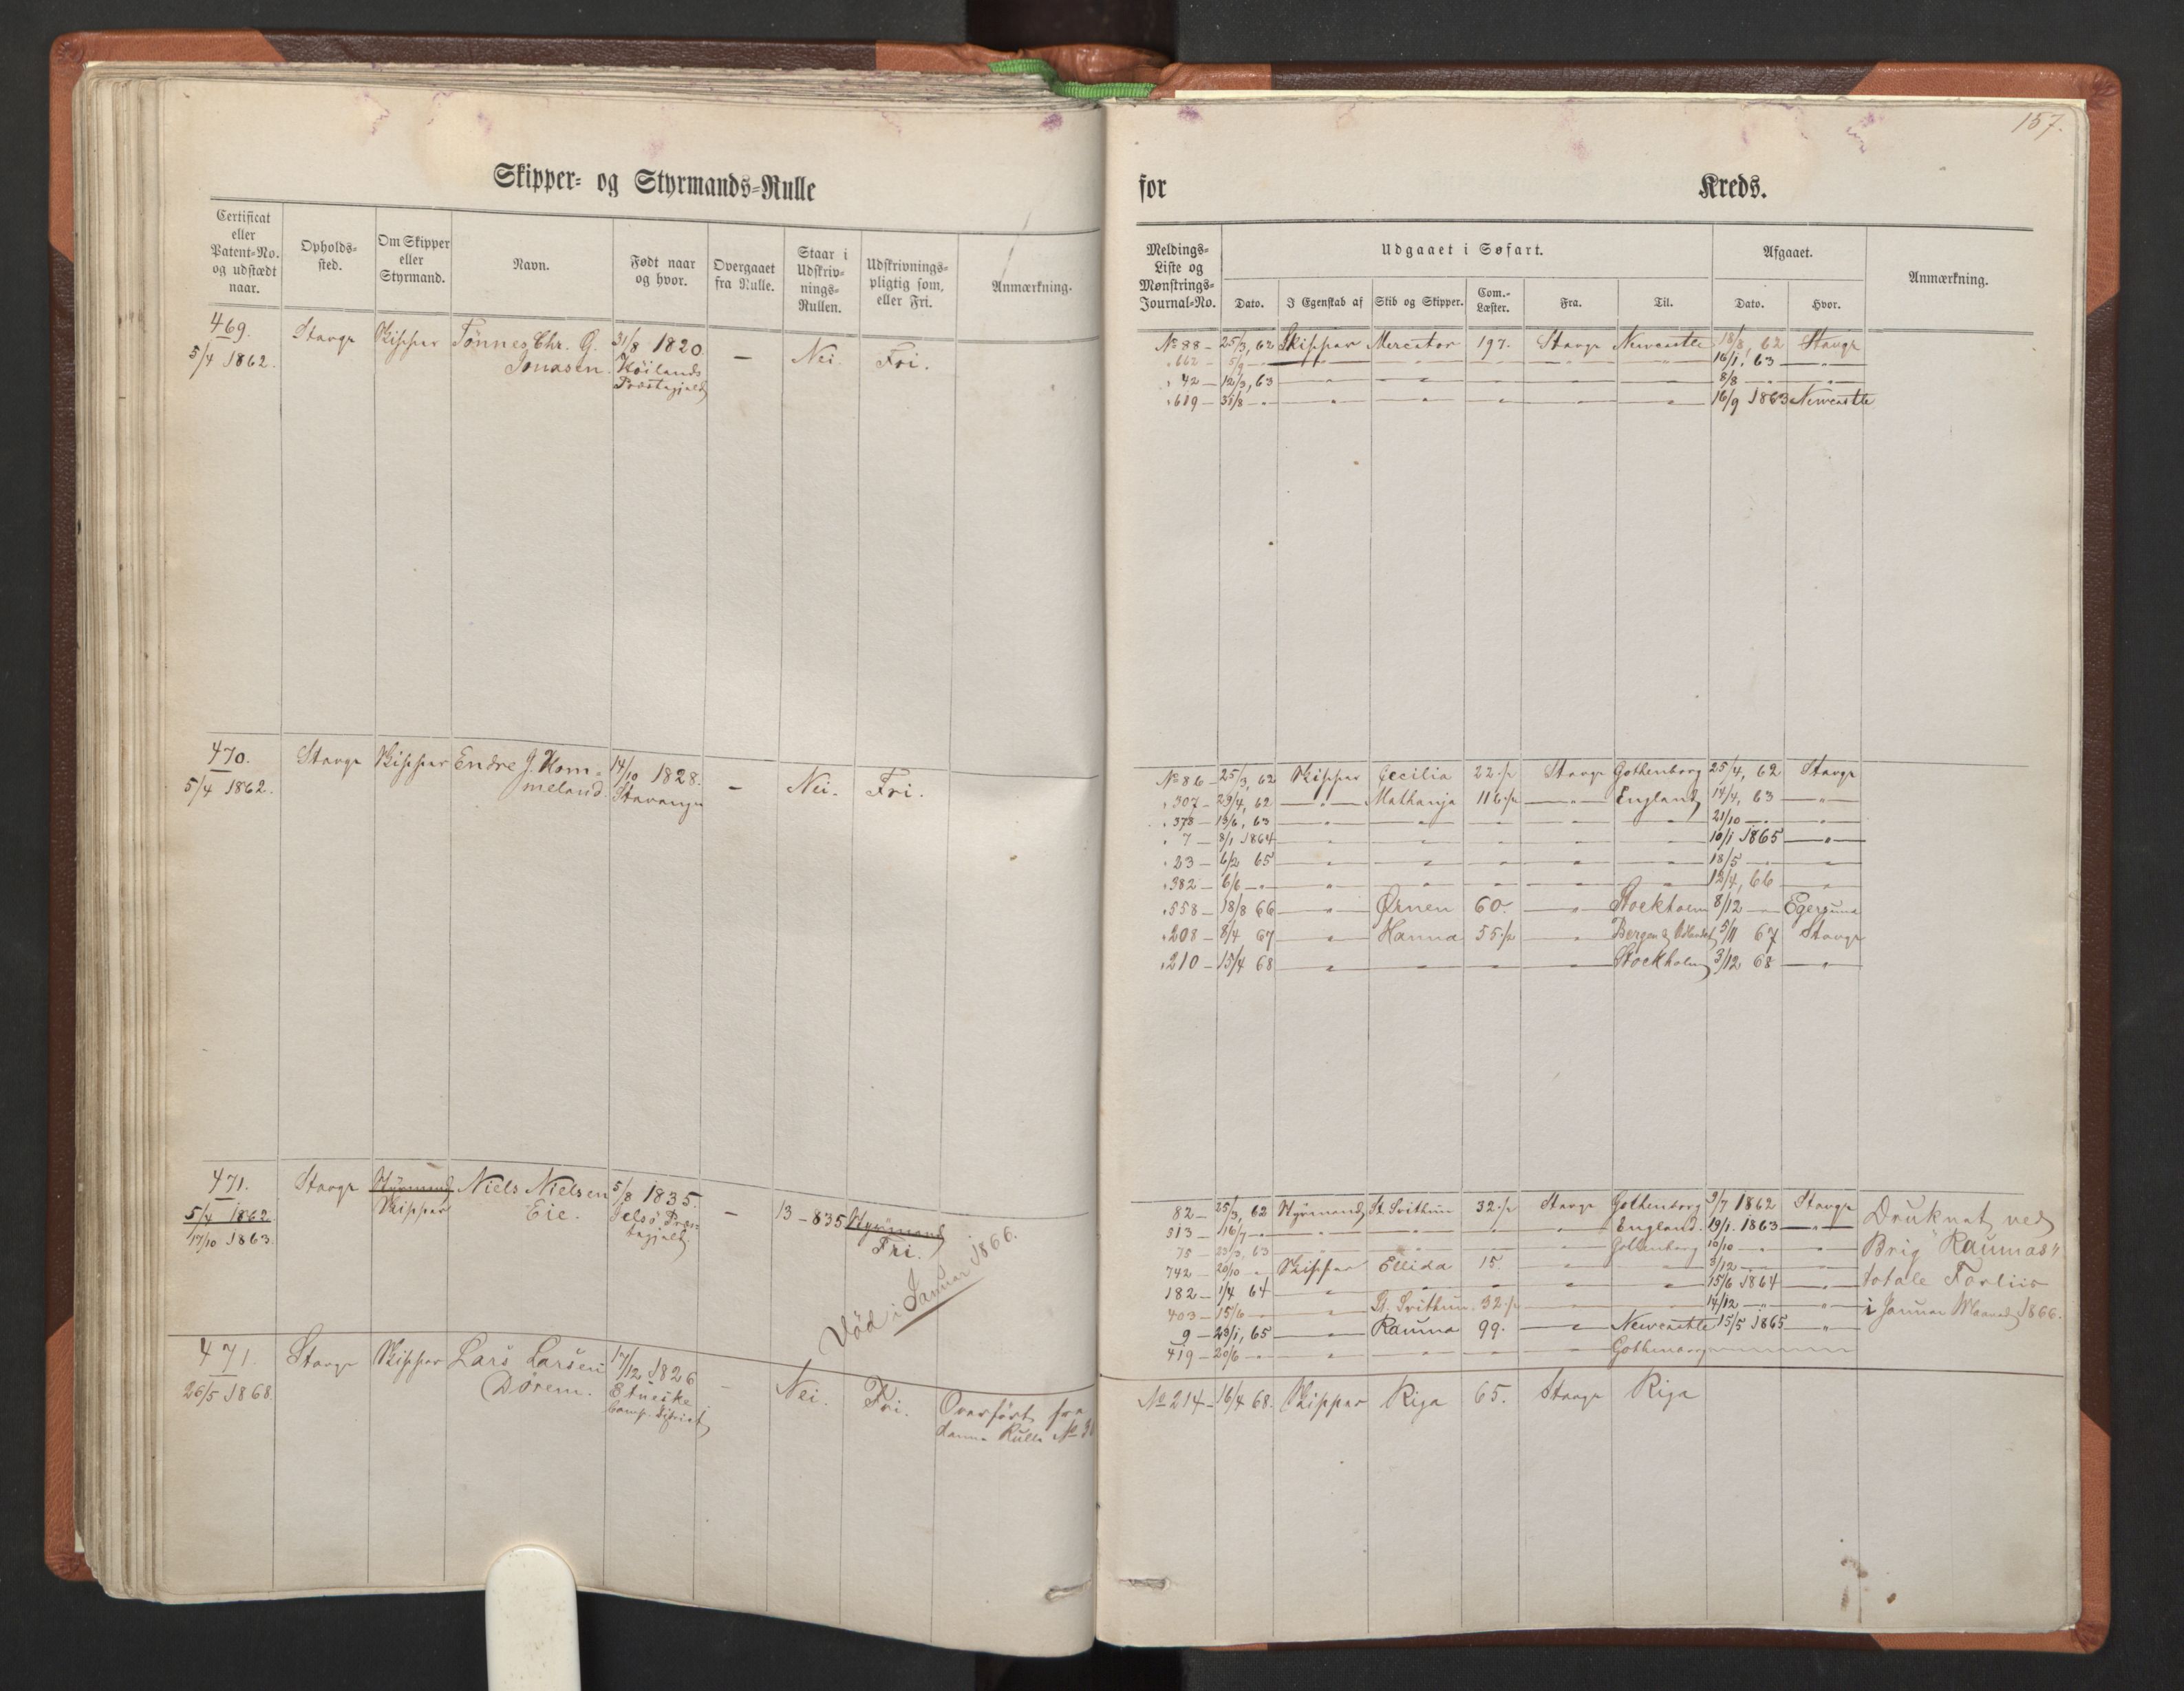 157.
Skipper- og Styrmands-Rulle
for Kreds.
Certificat eller Patent-No. og udstædt naar.
Opholds-sted.
Om Skipper eller Styrmand.
Navn.
Født naar og hvor.
Overgaaet fra Rulle.
Staar i Udskriv-nings-Rullen.
Udskrivnings-pligtig som, eller Fri.
Anmærkning.
Meldings-Liste og Mønstrings-Journal-No.
Udgaaet i Søfart.
Dato. I Egenskab af Skib og Skipper. Com.-Læster. Fra. Til.
Afgaaet.
Dato. Hvor.
Anmærkning.
469. Stavgr Skipper Tønnes Chr. G. 31/8 1820.
5/4 1862. Jonasen. Köilands — Nei. Fri.
Præstegjeld
No 88 - 25/3, 62 Skipper Mercator 197. Stavgr Newcastle 18/8, 62 Stavgr
" 662 - 5/9 - " - " " " " " " 16/1, 63 "
" 42 - 12/3, 63 " " " " " 8/8 - " "
" 619 - 31/8 - " " " " " " 16/9 1863 Newcastle
470. Stavgr Skipper Endre J. Hom- 14/10 1828.
5/4 1862. meland. Stavanger — Nei. Fri.
No 86 - 25/3, 62 Skipper Cecilia 22 1/2 Stavgr Gothenborg 25/4, 62 Stavgr
" 307 - 29/4, 62 " Mathanja 116 1/2 " England 14/4, 63 "
" 378 - 13/6, 63 " " " " " 21/10 - " "
" 7 - 8/1 1864 " " " " " 10/1 1865 "
" 23 - 6/2 65 " " " " " 18/5 - "
" 382 - 6/6 - " " " " " " 12/4, 66 "
" 558 - 18/8 66 " Ørnen 60. " Stockholm 8/12 - Egersund
" 208 - 8/4, 67 " Hanna 55 1/2 " Bergen & 5/11 67 Stavgr
" 210 - 15/4 68 " " " " Stockholm 3/12 68 "
471. Stavgr Styrmand Niels Nielsen 5/8 1835.
5/4 1862. Skipper Eie. Jelsø Præs- — 13 - 835 Styrmand
17/10 1863. tegjeld. Fri.
Död i Januar 1866.
82 - 25/3, 62 Styrmand St. Svithun 32 1/2 Stavgr Gothenborg 9/7 1862 Stavgr Druknet ved
513 - 16/7 - " " " " " England. 19/1. 1863 " Brig "Raumas"
75 - 23/3, 63 " " " " Gothenborg 10/10 - " " totale Forliis
742 - 20/10 " Skipper Ellida 15. " " 3/12 - " i Januar Maaned 1866.
182 - 1/4 64 " " " " " 15/6 1864 "
403 - 15/6 - " St. Svithun 32 1/2 " " 14/12 - " "
9 - 23/1, 65 " Rauma 99. " Newcastle 15/5 1865 "
419 - 20/6 - " " " " " Gothenborg
471. Stavgr Skipper Lars Larsen 17/12 1826
26/5 1868. Dörem. — Nei. Fri. Overført fra
denne Rulle No
No 214 - 16/4 68. Skipper Riga 65. Stavgr Riga